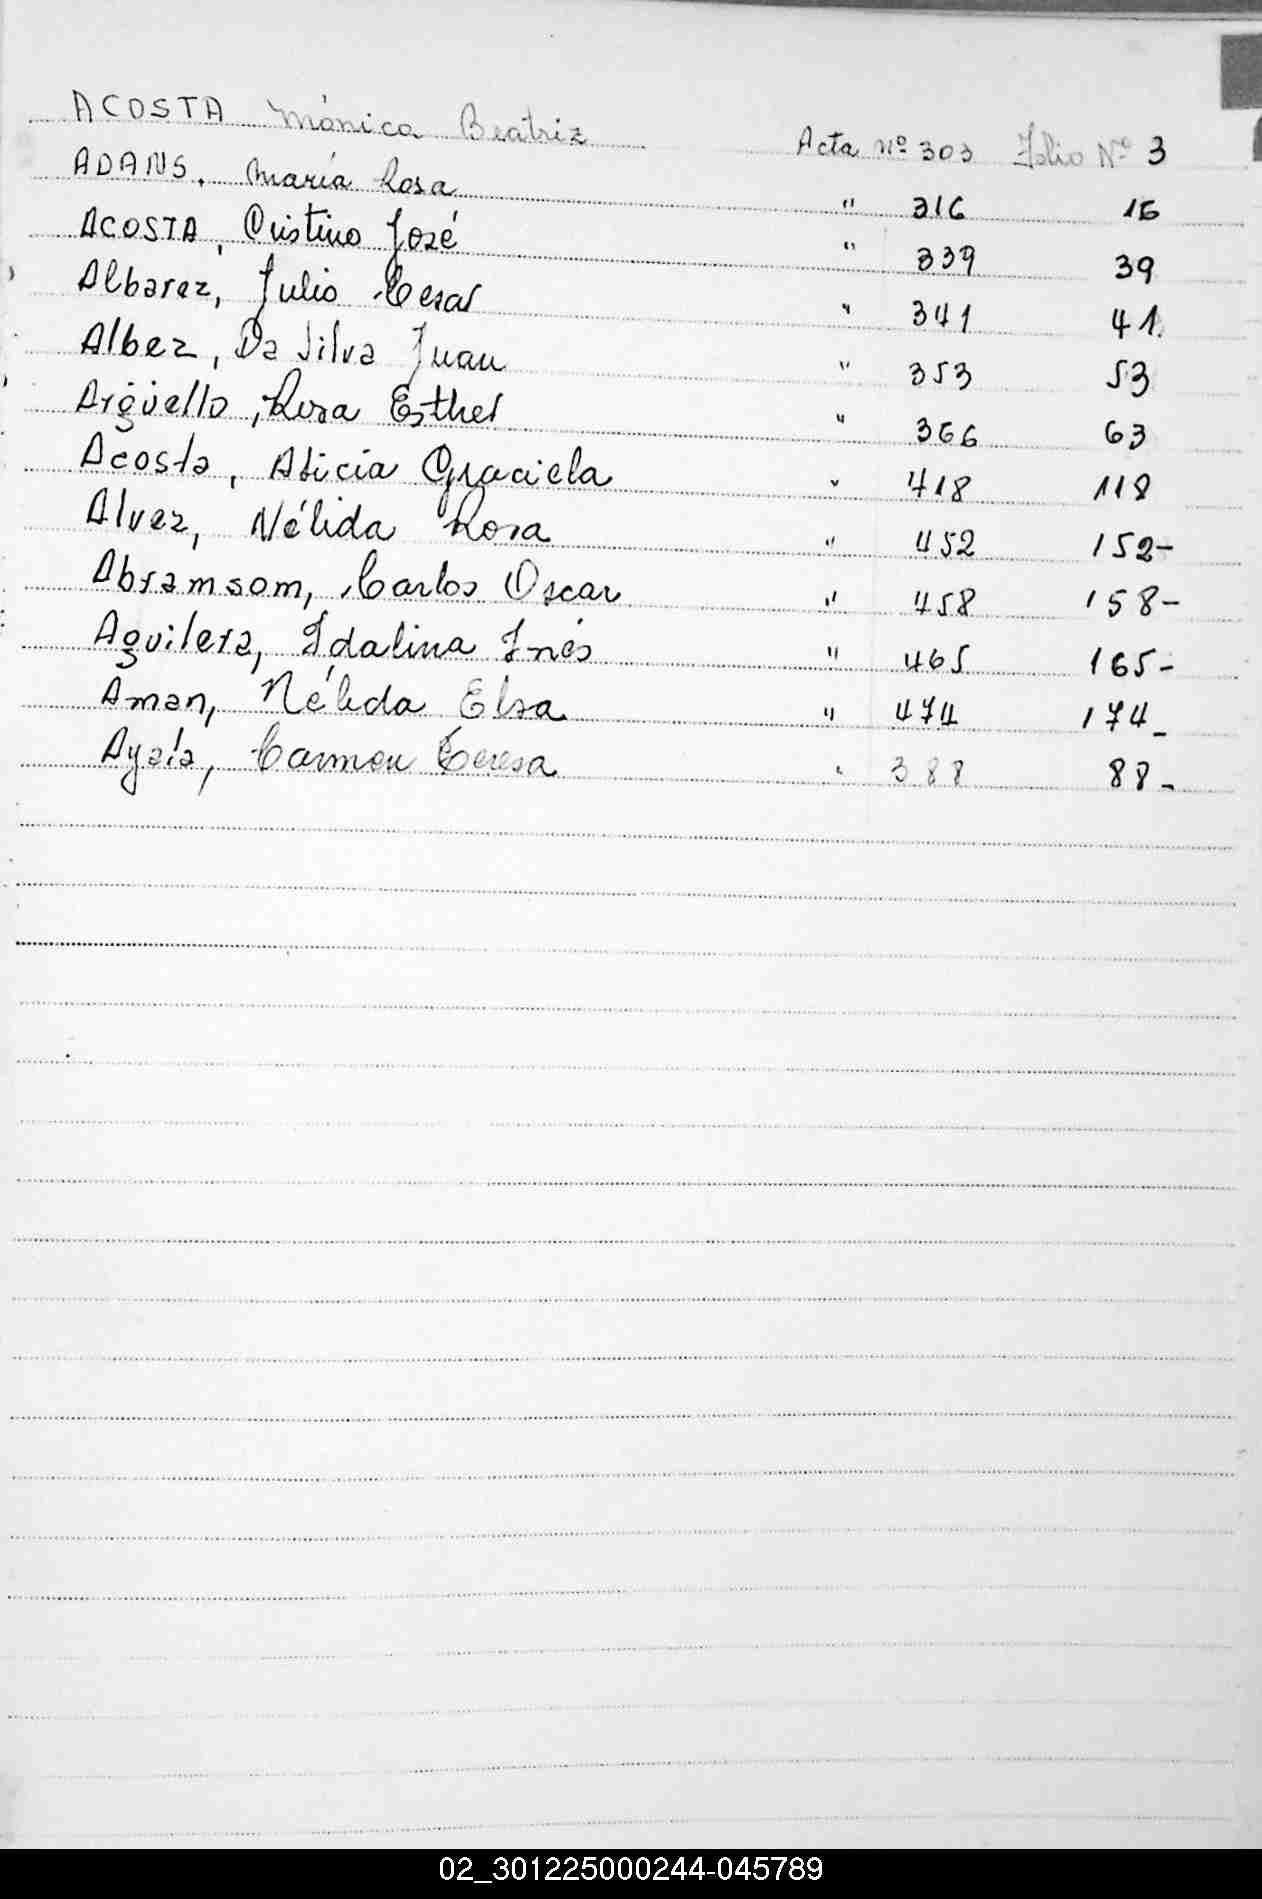 ACOSTA Mónica Beatriz Acta Nº 303 Folio Nº 3
ADANS, María Rosa " 316 16
ACOSTA, Cristino José " 339 39
Albarez, Julio Cesar " 341 41
Albez, Da Silva Juan " 353 53
Argüello, Rosa Esther " 366 63
Acosta, Alicia Graciela " 418 118
Alvez, Nélida Rosa " 452 152-
Abramsom, Carlos Oscar " 458 158-
Aguilera, Idalina Inés " 465 165-
Aman, Nélida Elsa " 474 174-
Ayala, Carmen Teresa " 388 88-
02_301225000244-045789